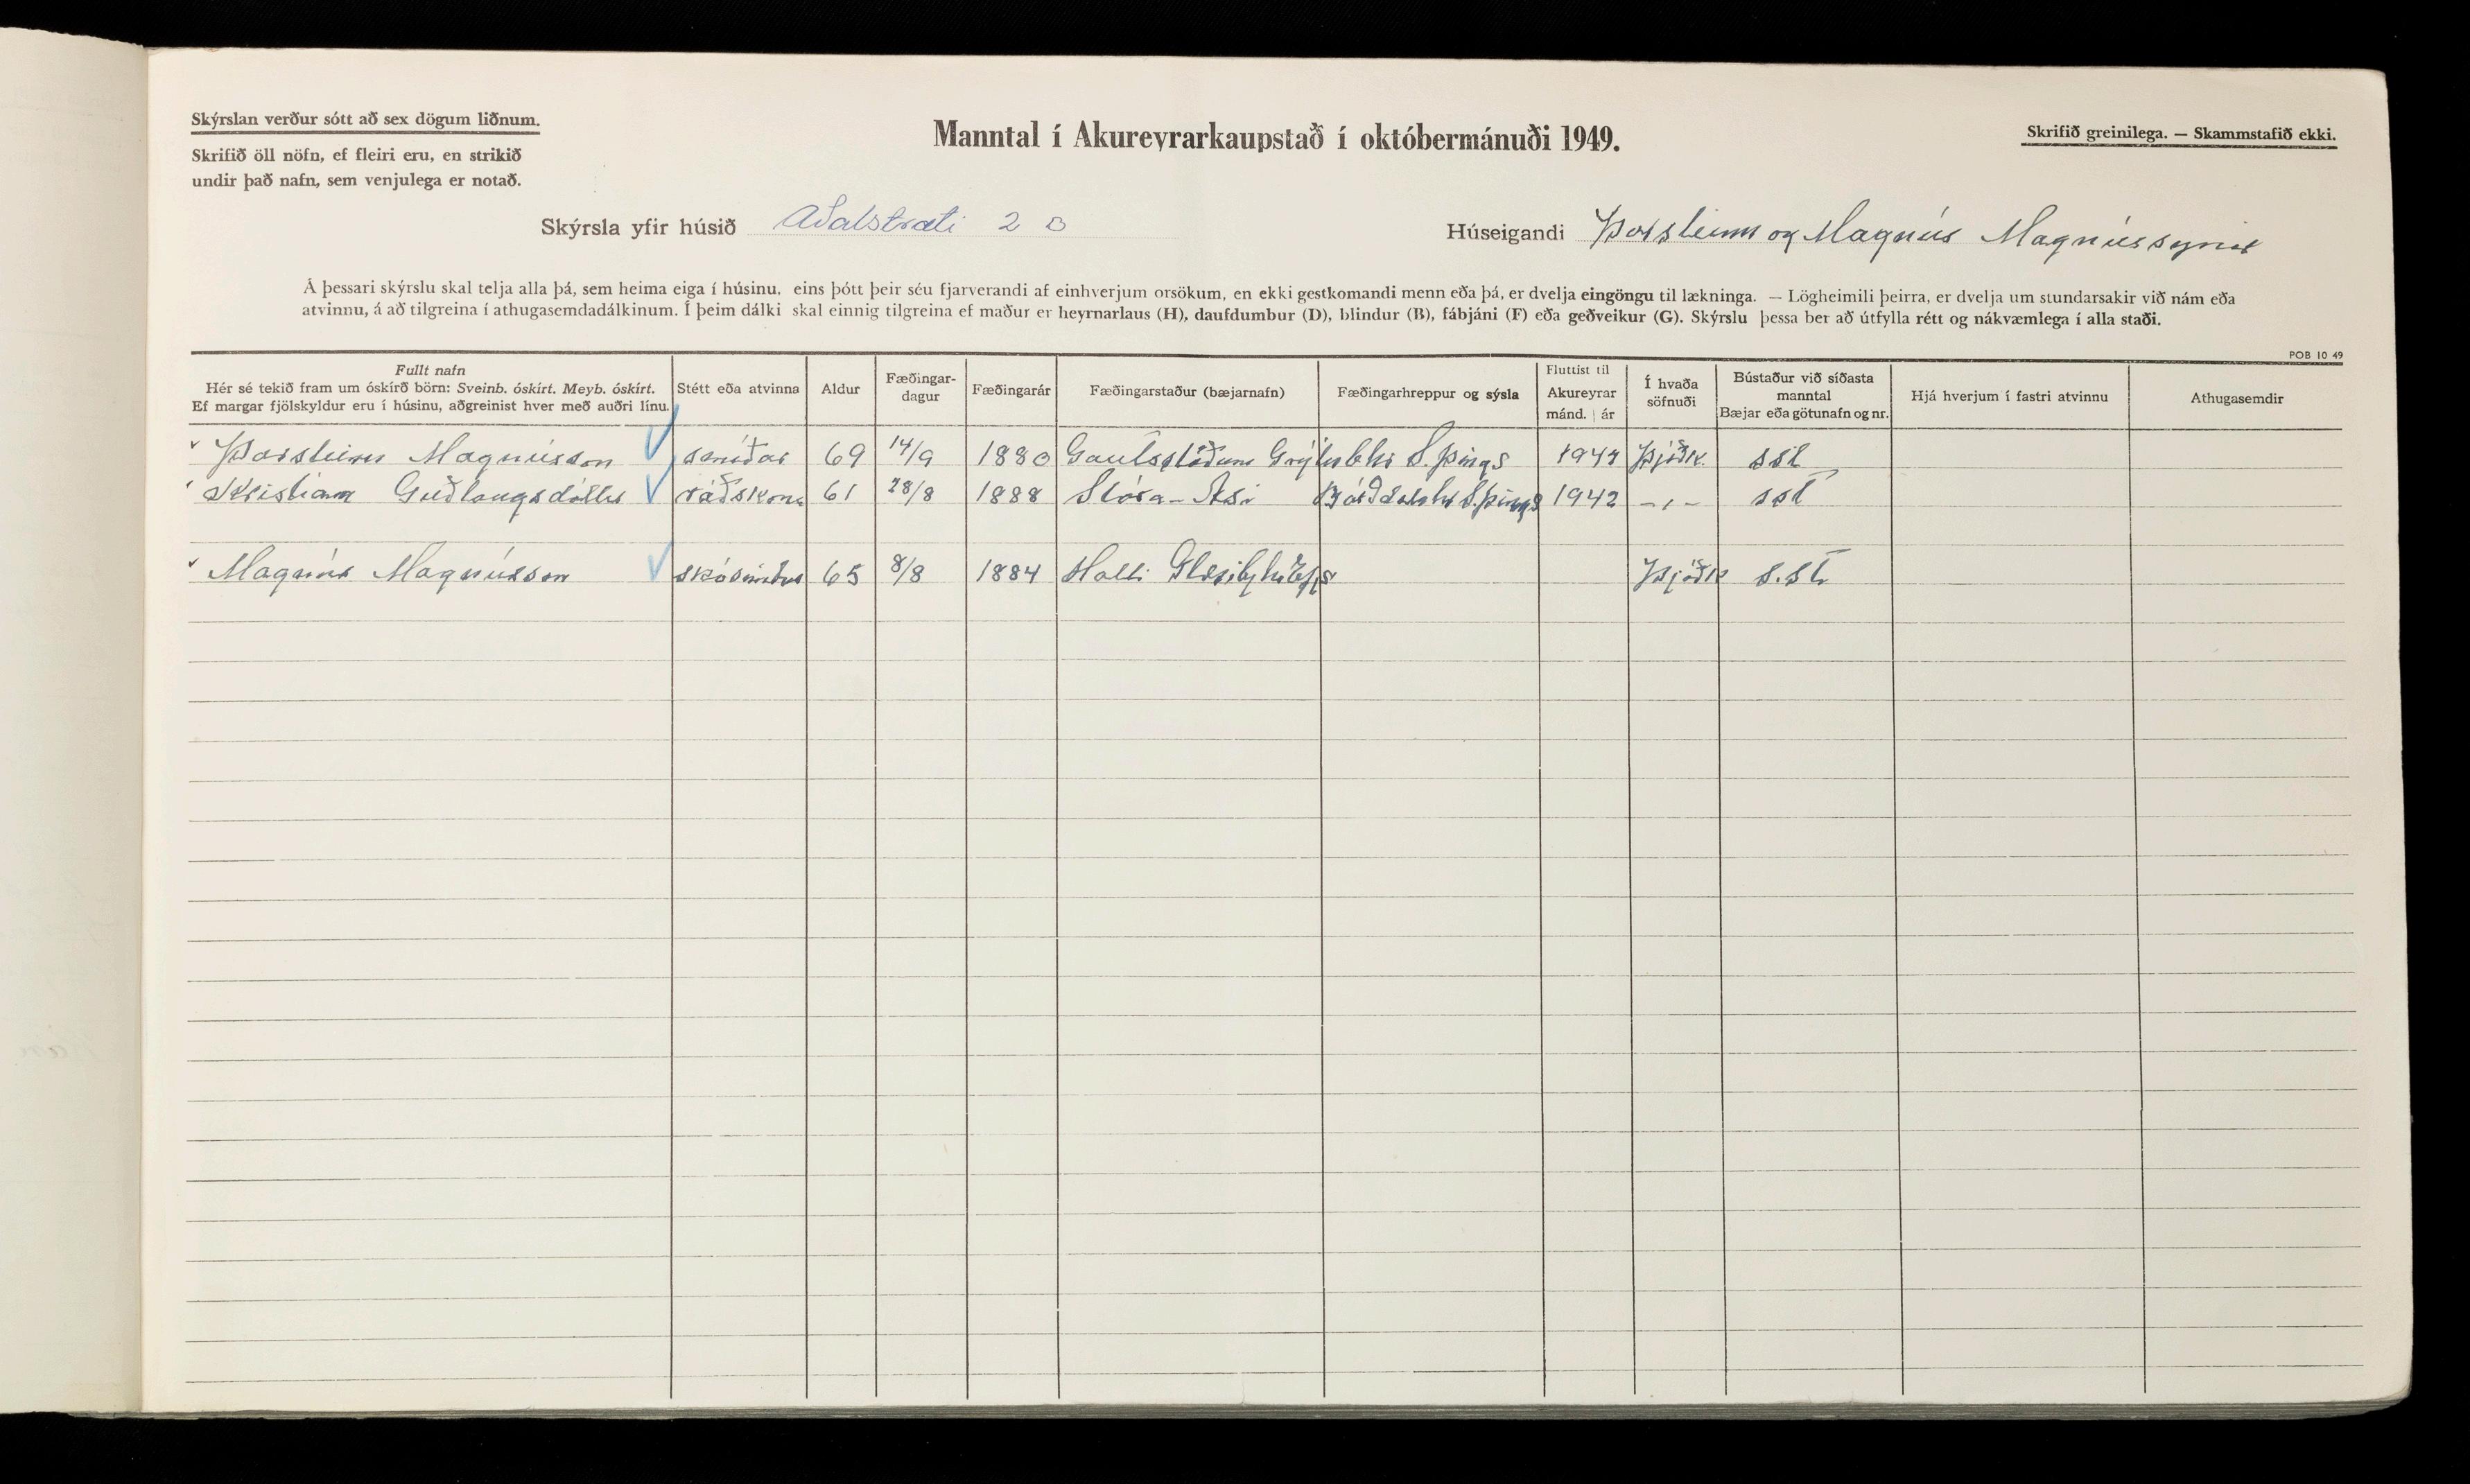 Skýrslan verður sótt að sex dögum liðnum.
Skrifið öll nöfn, ef fleiri eru, en strikið
undir það nafn, sem venjulega er notað.
Manntal í Akureyrarkaupstað í októbermánuði 1949.
Skrifið greinilega. — Skammstafið ekki.
Skýrsla yfir húsið Aðalstræti 2 B
Húseigandi Þorsteinn og Magnús Magnússynir
Á þessari skýrslu skal telja alla þá, sem heima eiga í húsinu, eins þótt þeir séu fjarverandi af einhverjum orsökum, en ekki gestkomandi menn eða þá, er dvelja eingöngu til lækninga. — Lögheimili þeirra, er dvelja um stundarsakir við nám eða
atvinnu, á að tilgreina í athugasemdadálkinum. Í þeim dálki skal einnig tilgreina ef maður er heyrnarlaus (H), daufdumbur (D), blindur (B), fábjáni (F) eða geðveikur (G). Skýrslu þessa ber að útfylla rétt og nákvæmlega í alla staði.
POB 10 49
Fullt nafn
Hér sé tekið fram um óskírð börn: Sveinb. óskírt. Meyb. óskírt.
Ef margar fjölskyldur eru í húsinu, aðgreinist hver með auðri línu.
Stétt eða atvinna
Aldur
Fæðingar-
dagur
Fæðingarár
Fæðingarstaður (bæjarnafn)
Fæðingarhreppur og sýsla
Fluttist til
Akureyrar
mánd. | ár
Í hvaða
söfnuði
Bústaður við síðasta
manntal
Bæjar eða götunafn og nr.
Hjá hverjum í fastri atvinnu
Athugasemdir
Þorsteinn Magnússon smíðar 69 14/9 1880 Gautsstöðum S.þings Þjóðk. sst
Kristjana Guðlaugsdóttir ráðskona 61 28/8 1888 Stóra-Ási Bárðdælahr S.þings 1942 -,- sst
Magnús Magnússon skósmiður 65 8/8 1884 Halli Þjóðk s.st.